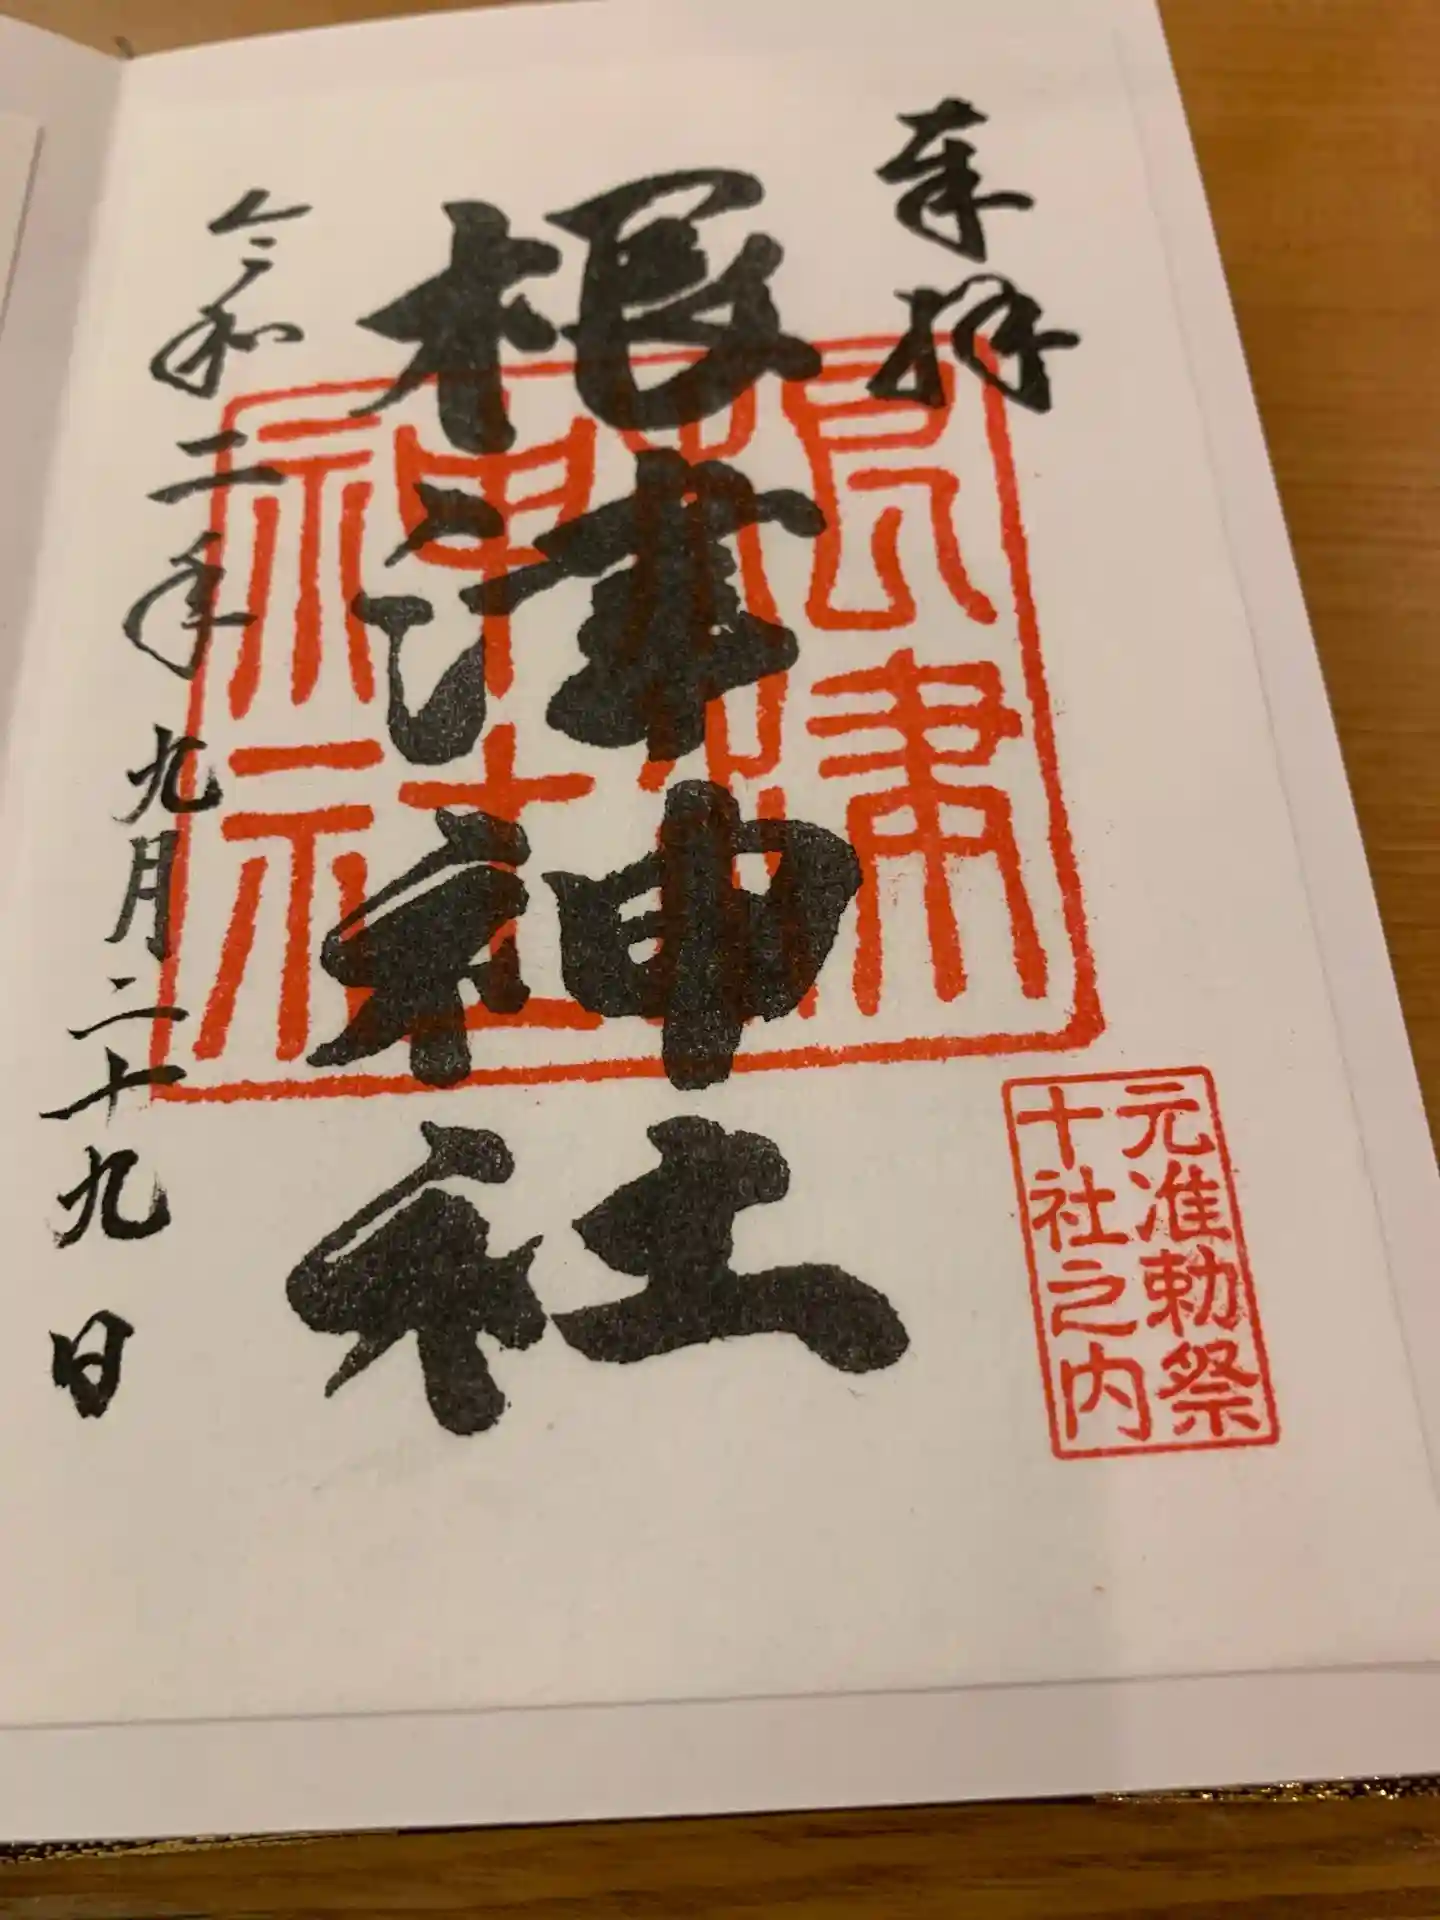 奉拝
元准勅祭
十社之内
根津神社
根津
神社
令和二年九月二十九日